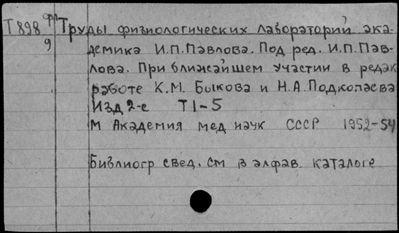 Т898 фп Труды физиологических лабораторий ака-
9 демика И.П.Павлова. Под ред. И.П.Пав-
лова. При ближайшем участии в редак
работе К.М. Быкова и Н.А.Подкопаева
Изд 2-е Т1-5
М Академия мед наук СССР 1952-54
Библиогр свед. см в алфав. каталоге